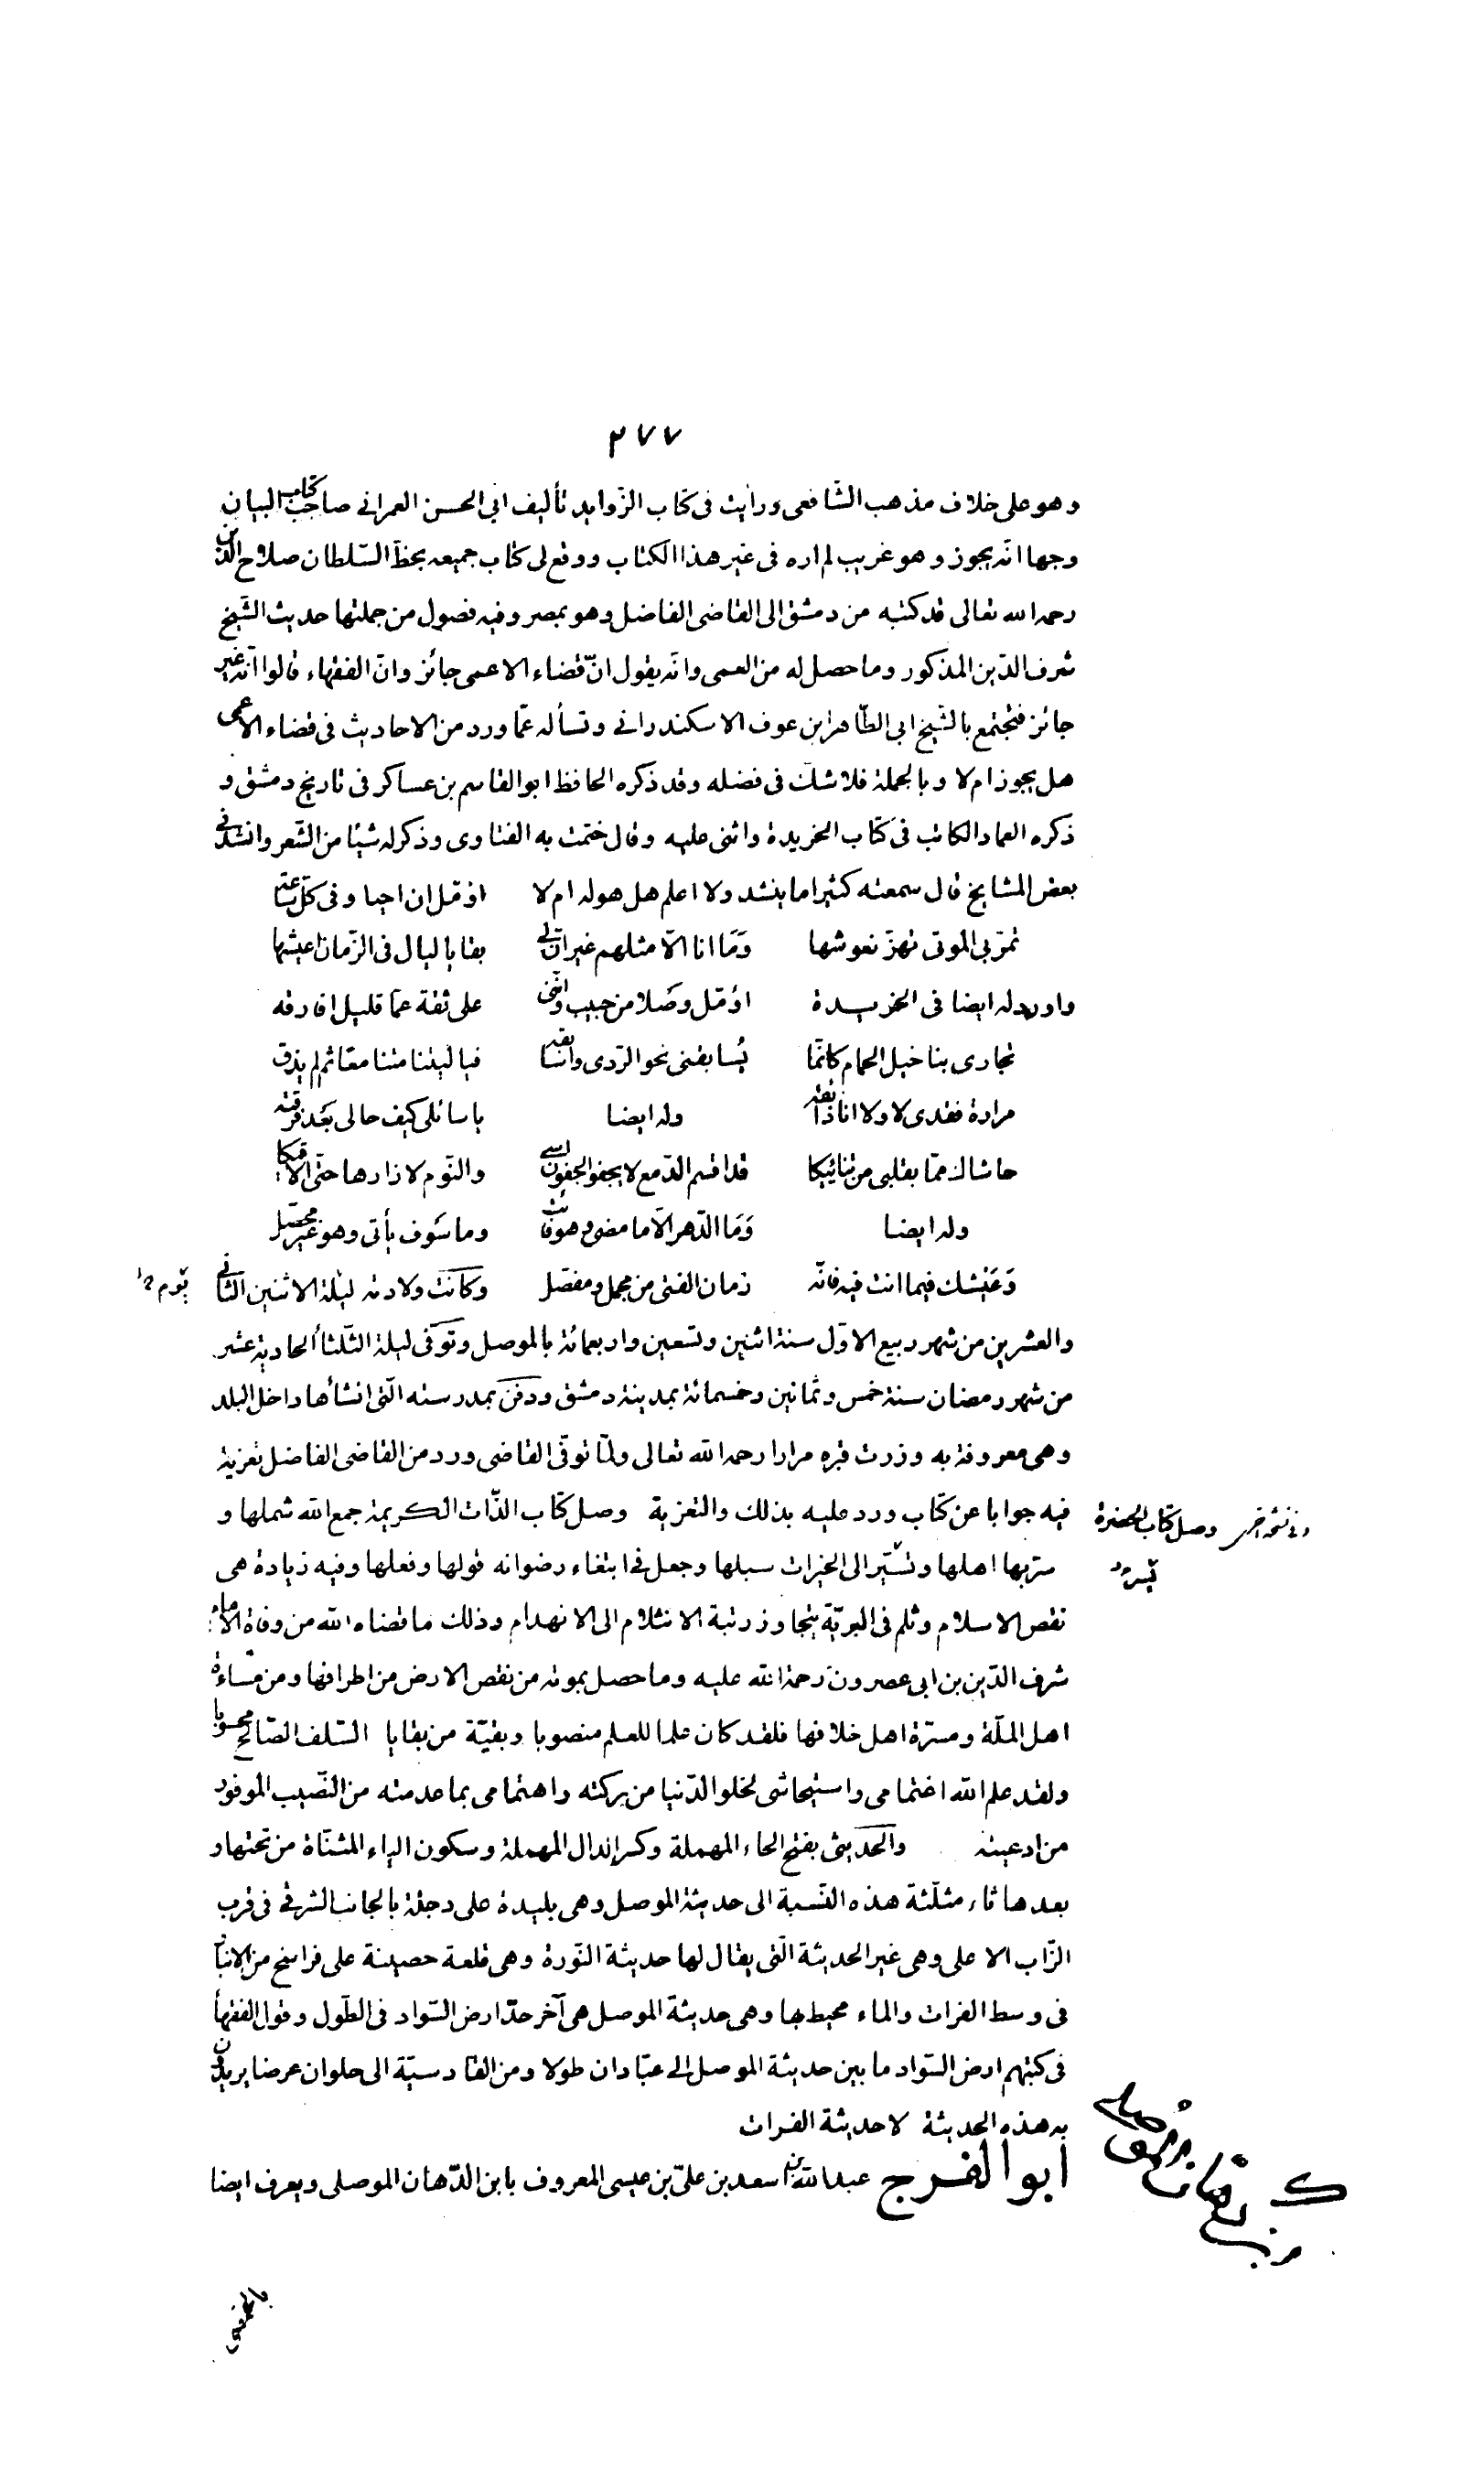 ٢٧٧
وهو على خلاف مذهب الشّافعى ورأيت فى كتاب الزّوايد تأليف ابى الحسن العمرانى صاحب كتاب البيان
وجها انّه يجوز وهو غريب لم اره فى غير هذا الكتاب ووقع لى كتاب جميعه بخطّ السّلطان صلاح الدّين
رحمه الله تعالى قد كتبه من دمشق الى القاضى الفاضل وهو بمصر وفيه فصول من جملتها حديث الشّيخ
شرف الدّين المذكور وما حصل له من العمى وانّه يقول انّ قضاء الاعمى جائز وانّ الفقهاء قالوا انّه غير
جائز فتجتمع بالشّيخ ابى الطّاهر ابن عوف الاسكندرانى وتسأله عمّا ورد من الاحاديث فى قضاء الاعمى
هل يجوز ام لا وبالجملة فلا شك فى فضله وقد ذكره الحافظ ابو القاسم بن عساكر فى تاريخ دمشق و
ذكره العماد الكاتب فى كتاب الخريدة واثنى عليه وقال ختمت به الفتاوى وذكر له شيئا من الشّعر وانشدنى
بعض المشايخ قال سمعته كثيرا ما ينشد ولا اعلم هل هو له ام لا اؤمّل ان احيا وفى كلّ ساعة
تمرّ بى الموتى تهزّ نعوشها وَمَا انا الّا مثلهم غير انّ لى بقايا ليال فى الزّمان اعيشها
واورد له ايضا فى الخريدة اؤمّل وصَلا من حبيب وانّنى على ثقة عمّا قليل افارقه
تجارى بنا خيل الحمام كانّما يُسابقنى نحو الرّدى واسابقه فيا ليتنا متنا معَا ثم لم يذق
مرارة فقدى لا ولا انا ذائقه وله ايضا يا سائلى كيف حالى بَعد فرقته
حاشاك ممّا بقلبى من تنائيكا قد اقسم الدّمع لا يجفو الجفون اسى والنّوم لا زارها حتّى الاقيكا
وله ايضا وَمَا الدّهر الّا ما مضى وهو فائت وما سَوف يأتى وهو غير محصّل
وَعَيْشك فيما انت فيه فانّه زمان الفتى من مجمل ومفصّل وكانَت ولادته ليلة الاثنين الثّانى
يَوم
والعشرين من شهر ربيع الاوّل سنة اثنين وتسعين واربعمائة بالموصل وتَوفّى ليلة الثّلثا الحادية عشر
من شهر رمضان سنة خمس وثمانين وخمسمائة بمدينة دمشق ودفن بمدرسته الّتى انشأها داخل البلد
وهى معروفة به وزرت قبره مرارا رحمه الله تعالى ولمّا توفّى القاضى ورد من القاضى الفاضل تعزية
فيه جوابا عن كتاب ورد عليه بذلك والتعزية وصل كتاب الذّات الكريمة جمع الله شملها و
وفى نسخة اخرى وصل كتاب الحضرة
سرّ بها اهلها وتسّير الى الخيرات سبلها وجعل فى ابتغاء رضوانه قولها وفعلها وفيه زيادة هى
نقص الاسلام وثلم فى البريّة يتجاوز رتبة الانثلام الى الانهدام وذلك ما قضاه الله من وفاة الامام
شرف الدّين بن ابى عصرون رحمة الله عليه وما حصل بموته من نقص الارض من اطرافها ومن مساءة
اهل الملّة ومسرّة اهل خلافها فلقد كان علما للعلم منصوبا وبقيّة من بقايا السّلف الصّالح محسوبا
ولقد علم الله اغتمامى واستيحاشى لخلو الدّنيا من بركته واهتمامى بما عدمته من النّصيب الموفور
من ادعيته والحَديثى بفتح الحاء المهملة وكسر الدال المهملة وسكون الياء المثنّاة من تحتها و
بعدها ثاء مثلّثة هذه النّسبة الى حديثة الموصل وهى بليدة على دجلة بالجانب الشرقى فى قرب
الزّاب الاعلى وهى غير الحديثة الّتى يقال لها حديثة النّورة وهى قلعة حصينة على فراسخ من الانبار
فى وسط الفرات والماء محيط بها وهى حديثة الموصل هى آخر حدّ ارض السّواد فى الطّول وقول الفقهأ
فى كتبهم ارض السّواد ما بين حديثة الموصل الى عبّادان طولا ومن القادسيّة الى حلوان عرضا يريدون
به هذه الحديثة لا حديثة الفرات
ابو الفرج عبد الله بن اسعد بن علىّ بن عيسى المعروف بابن الدّهان الموصلى ويعرف ايضا